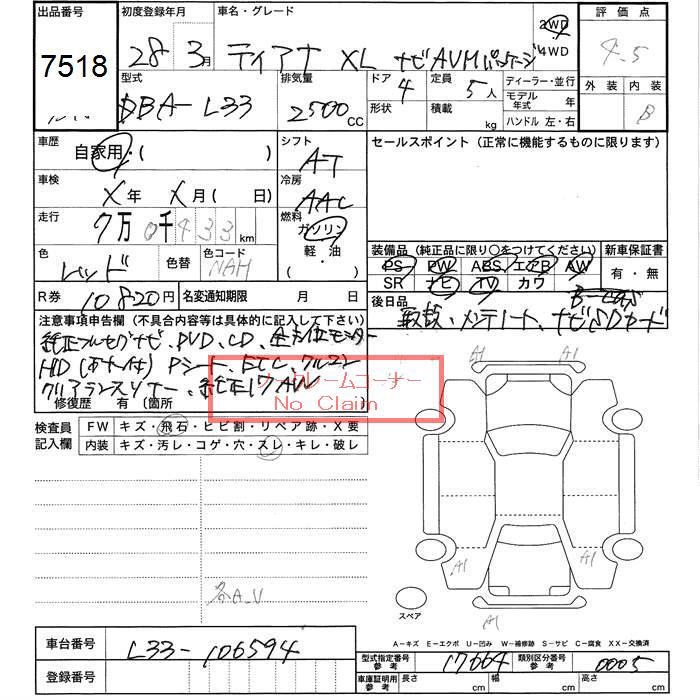 出品番号 初度登録年月 車名・グレード 評価点
7518 28年 3月 ティアナ XL ナビAVMパッケージ 2WD 4WD 4.5
型式 排気量 ドア 定員 ディーラー・並行 外装 内装
DBA-L33 2500CC 4 5人 モデル年式 年 B
形状 積載 kg ハンドル 左・右
車歴 シフト セールスポイント (正常に機能するものに限ります)
自家用・( ) AT
車検 冷房
X年 X月( 日) AAC
走行 燃料
7万0千433km ガソリン
軽・油
色 色替 色コード 装備品 (純正品に限り○をつけてください) 新車保証書
レッド NAH PS PW ABS エアB AW 有・無
SR ナビ TV カワ
R券 10820円 名変通知期限 月 日 後日品
取説、メンテノート、ナビSDカード
注意事項申告欄 (不具合内容等は具体的に記入して下さい)
純正フルセグナビ、DVD、CD、全方位モニター
HID Pシート、ETC、クルコン
クリアランスソナー、純正17AW
ノークレームコーナー
No Claim
修復歴 有 (箇所 )
検査員記入欄 FW キズ・飛石・ヒビ割・リペア跡・X要
内装 キズ・汚レ・コゲ・穴・スレ・キレ・破レ
A1 A1
A1 A1
A1
スペア
各A.U
A-キズ E-エクボ U-凹み W-補修跡 S-サビ C-腐食 XX-交換済
車台番号 L33-106594
型式指定番号 参考 17664 類別区分番号 参考 0005
登録番号
車庫証明用 参考 長さ cm 幅 cm 高さ cm